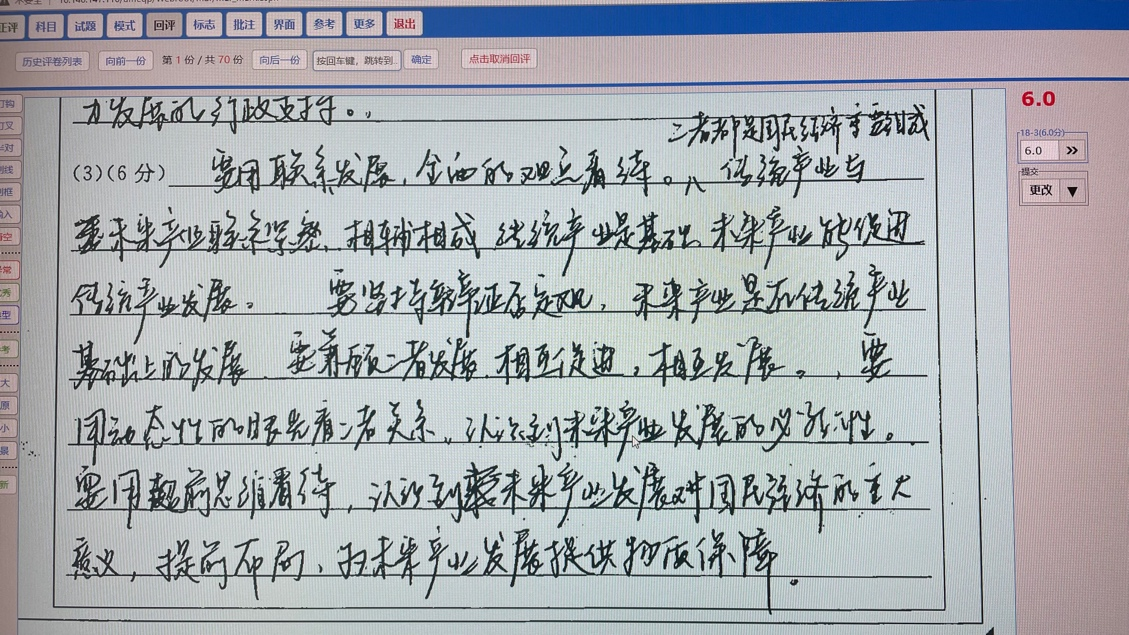 正评 科目 试题 模式 回评 标志 批注 界面 参考 更多 退出
历史评卷列表 向前一份 第 1 份 / 共 70 份 向后一份 按回车键，跳转到.. 确定 点击取消回评
6.0
18-3(6.0分)
6.0
提交
更改
力发展的行政支持。
二者都是国民经济重要组成
(3)(6 分) 要用联系发展，全面的观点看待。传统产业与
未来产业联系紧密，相辅相成 传统产业是基础 未来产业能促进
传统产业发展。 要坚持辩证否定观，未来产业是在传统产业
基础上的发展 要兼顾二者发展 相互促进，相互发展。，要
用动态性的眼光看二者关系，认识到未来产业发展的必然性。
要用超前思维看待，认识到未来产业发展对国民经济的重大
意义，提前布局，为未来产业发展提供物质保障。